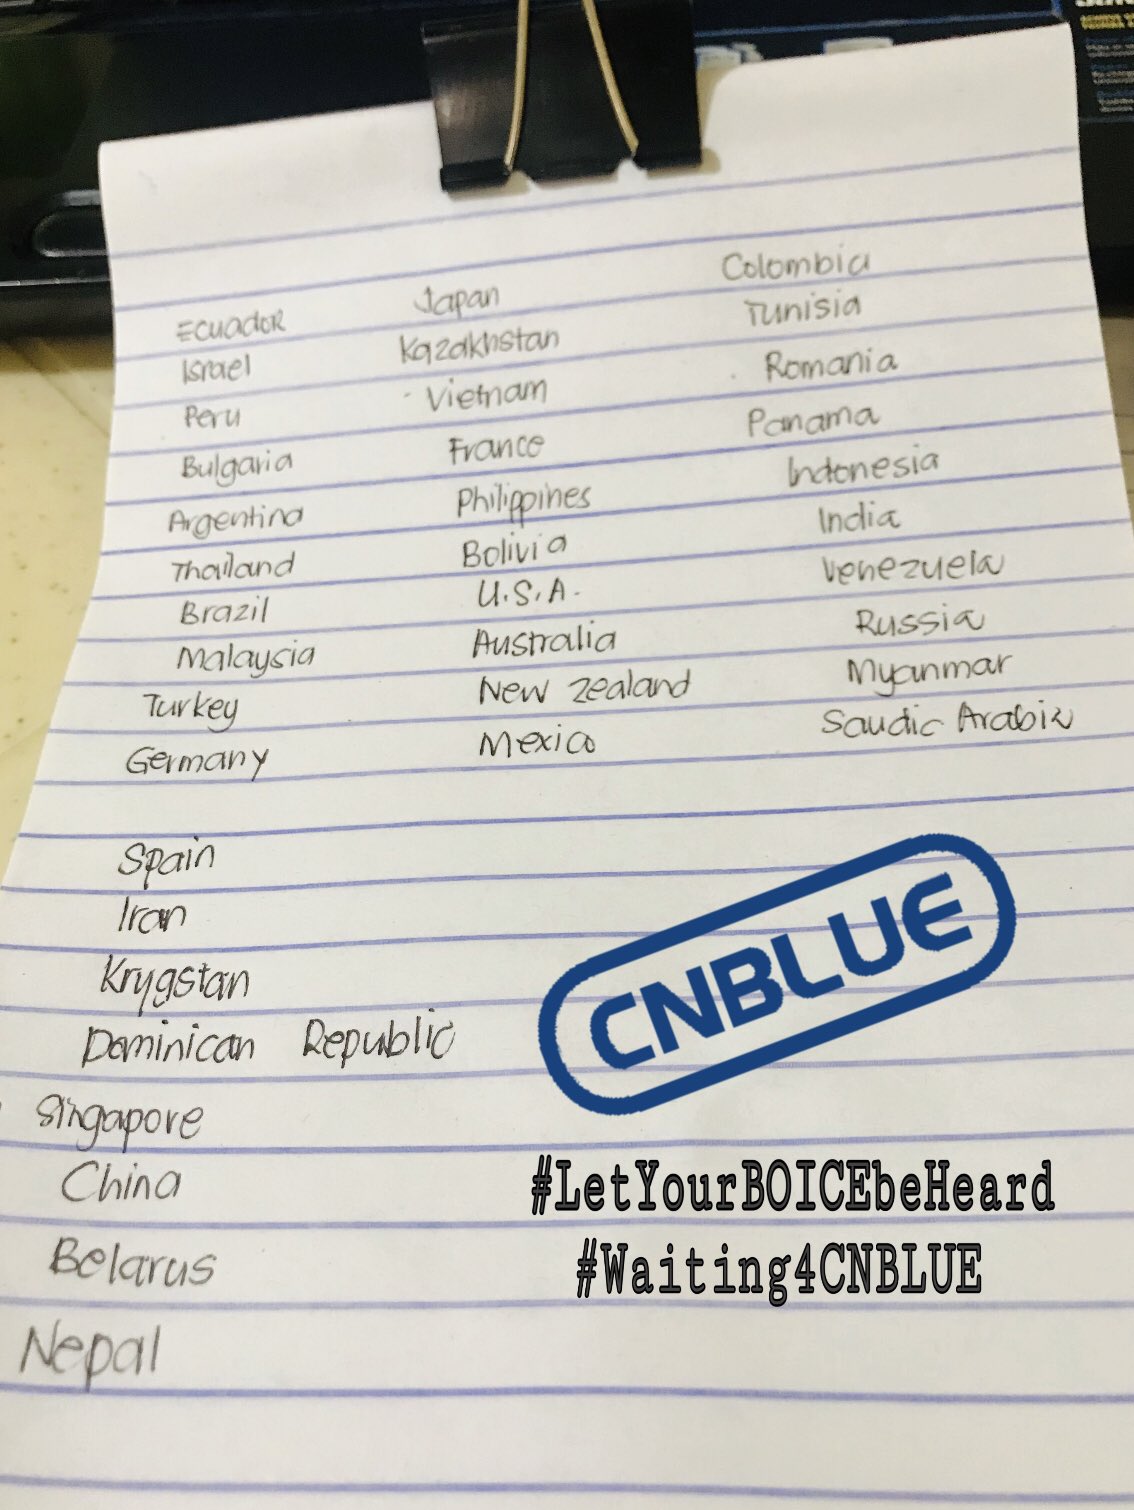 Ecuador
Israel
Peru
Bulgaria
Argentina
Thailand
Brazil
Malaysia
Turkey
Germany
Japan
Kazakhstan
Vietnam
France
Philippines
Bolivia
U.S.A.
Australia
New Zealand
Mexico
Colombia
Tunisia
Romania
Panama
Indonesia
India
Venezuela
Russia
Myanmar
Saudic Arabia
Spain
Iran
Krygstan
Dominican Republic
Singapore
China
Belarus
Nepal
CNBLUE
#LetYourBOICEbeHeard
#Waiting4CNBLUE